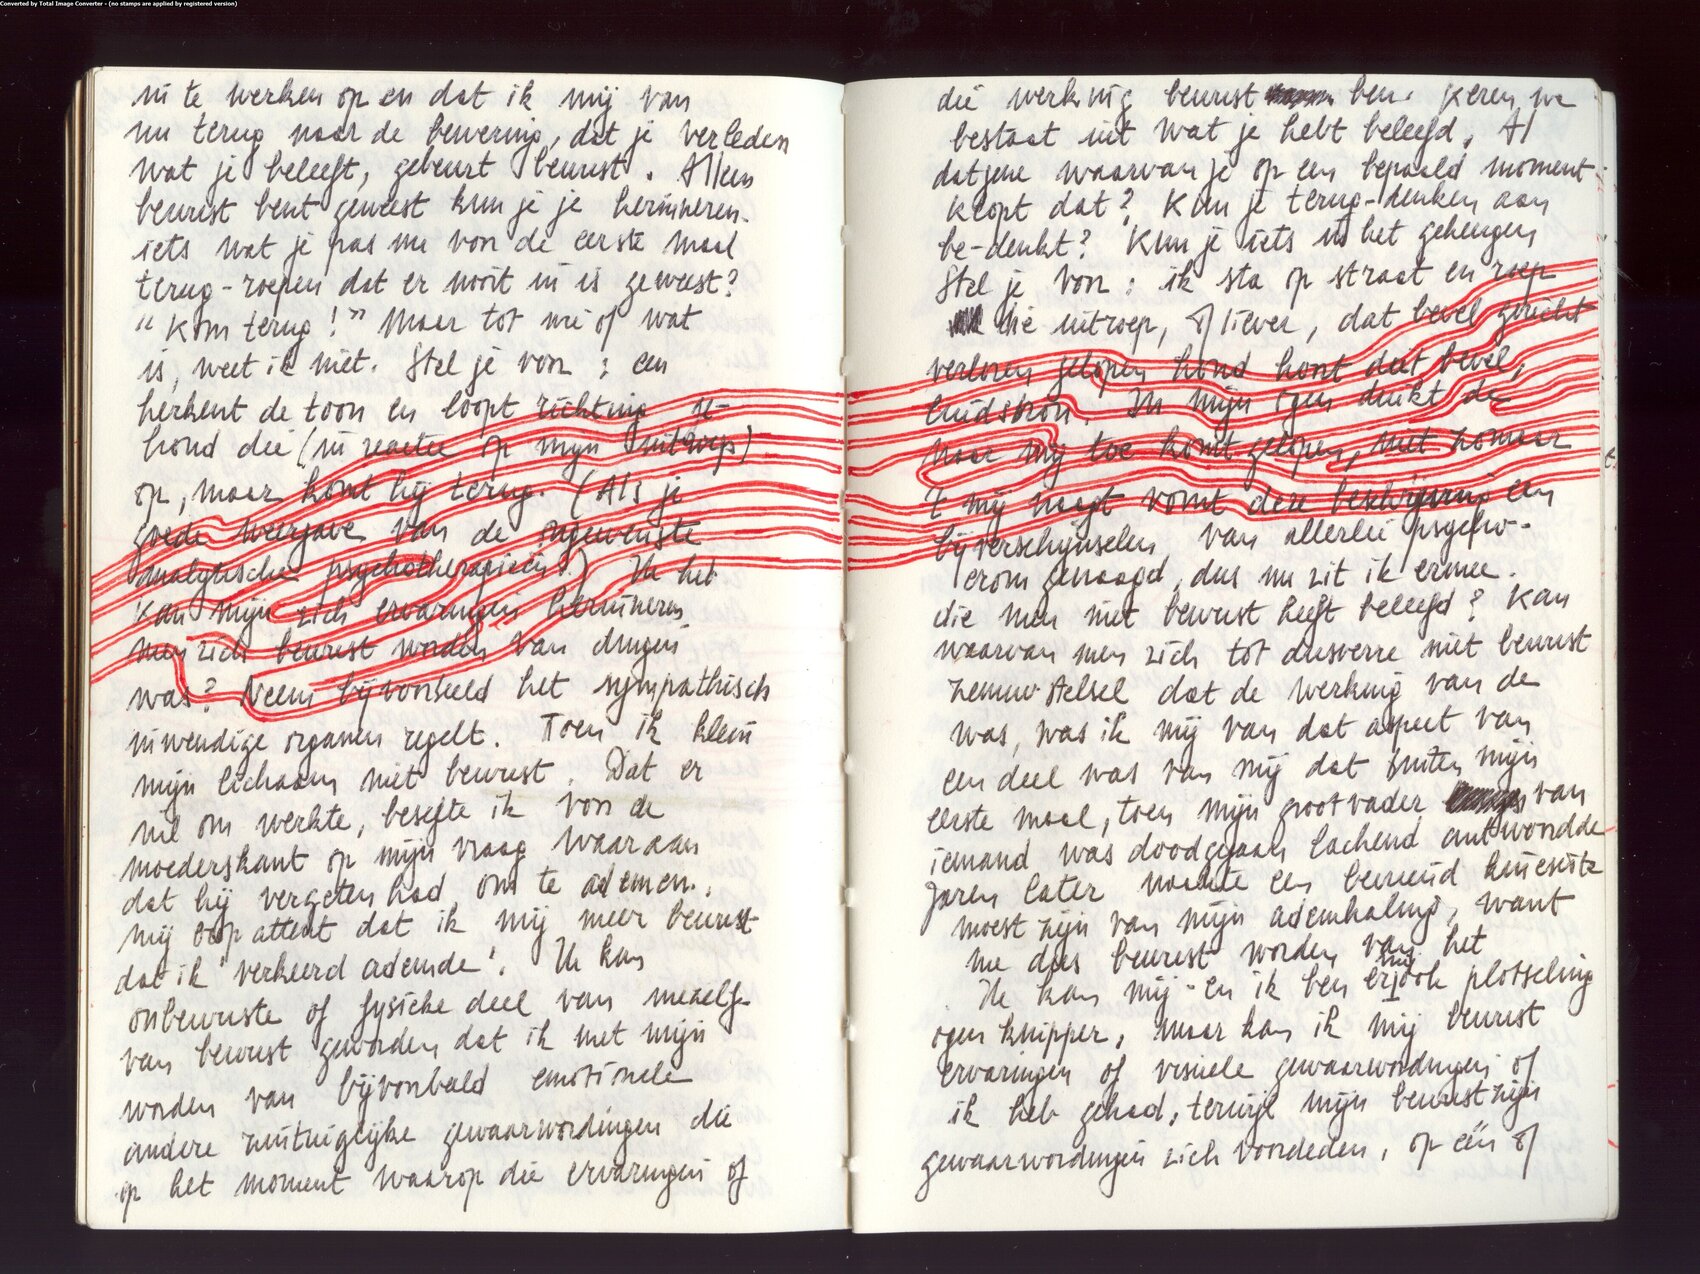 Converted by Total Image Converter - (no stamps are applied by registered version)
in te werken op en dat ik mij van
die werking bewust ben. Keren we
nu terug naar de bewering, dat je verleden
bestaat uit wat je hebt beleefd. Al
wat je beleeft, gebeurt bewust. Alleen
datgene waarvan je op een bepaald moment
bewust bent geweest kun je je herinneren.
Klopt dat? Kun je terug-denken aan
iets wat je pas nu voor de eerste maal
be-denkt? Kun je iets in het geheugen
terug-roepen dat er nooit in is geweest?
Stel je voor: ik sta op straat en roep
"Kom terug!" Maar tot wie of wat
die uitroep, of liever, dat bevel gericht
is, weet ik niet. Stel je voor: een
verloren gelopen hond hoort dit bevel,
herkent de toon en loopt richting ge-
luidsbron. In mijn ogen duikt de
hond die (in reactie op mijn uitroep)
naar mij toe komt gelopen, niet zomaar
op, maar komt hij terug. (Als je
't mij vraagt vormt deze beschrijving een
goede weergave van de ongewenste
bijverschijnselen van allerlei psycho-
analytische psychotherapieën.) Ik heb
erom gevraagd, dus nu zit ik ermee.
Kan mijn zich ervaringen herinneren
die men niet bewust heeft beleefd? Kan
men zich bewust worden van dingen
waarvan men zich tot dusverre niet bewust
was? Neem bijvoorbeeld het sympathisch
zenuwstelsel dat de werking van de
inwendige organen regelt. Toen ik klein
was, was ik mij van dat aspect van
mijn lichaam niet bewust. Dat er
een deel was van mij dat buiten mijn
wil om werkte, besefte ik voor de
eerste maal, toen mijn grootvader van
moederskant op mijn vraag waaraan
iemand was doodgegaan lachend antwoordde
dat hij vergeten had om te ademen.
Jaren later maakte een bevriend kinesiste
mij erop attent dat ik mij meer bewust
moest zijn van mijn ademhaling, want
dat ik 'verkeerd ademde'. Ik kan
me dus bewust worden van het
onbewuste of fysieke deel van mezelf.
Ik kan mij - en ik ben er mij ook plotseling
van bewust geworden dat ik met mijn
ogen knipper, maar kan ik mij bewust
worden van bijvoorbeeld emotionele
ervaringen of visuele gewaarwordingen of
andere zintuiglijke gewaarwordingen die
ik heb gehad, terwijl mijn bewustzijn
op het moment waarop die ervaringen of
gewaarwordingen zich voordeden, op één of